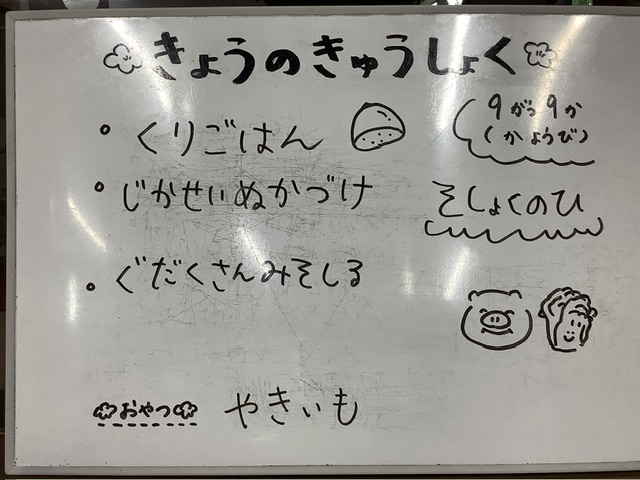 きょうのきゅうしょく
9がつ9か
(かようび)
・くりごはん
・じかせいぬかづけ
そしょくのひ
・ぐだくさんみそしる
おやつ やきいも